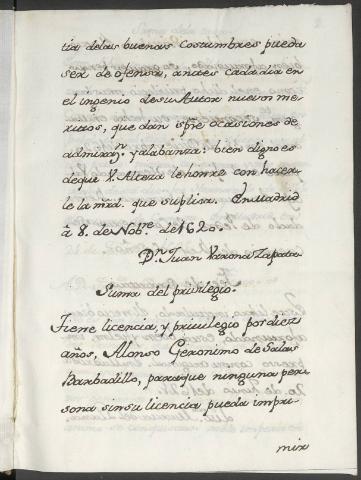 tia delas buenas costumbres pueda
ser de ofensa, antes cada dia en
el ingenio desu Autor nuevos me-
ritos, que dan spre ocasiones de
admiraz.ⁿ y alabanza: bien digno es
de que V. Alteza le honre con hacer-
le la mrd. que suplica. En Madrid
à 8. de Nobre. de 1620.
Dn. Juan Varona Zapata.
Suma del privilegio.
Tiene licencia, y privilegio por diez
años, Alonso Geronimo de Salas
Barbadillo, para que ninguna per-
sona sin su licencia pueda impri-
mir